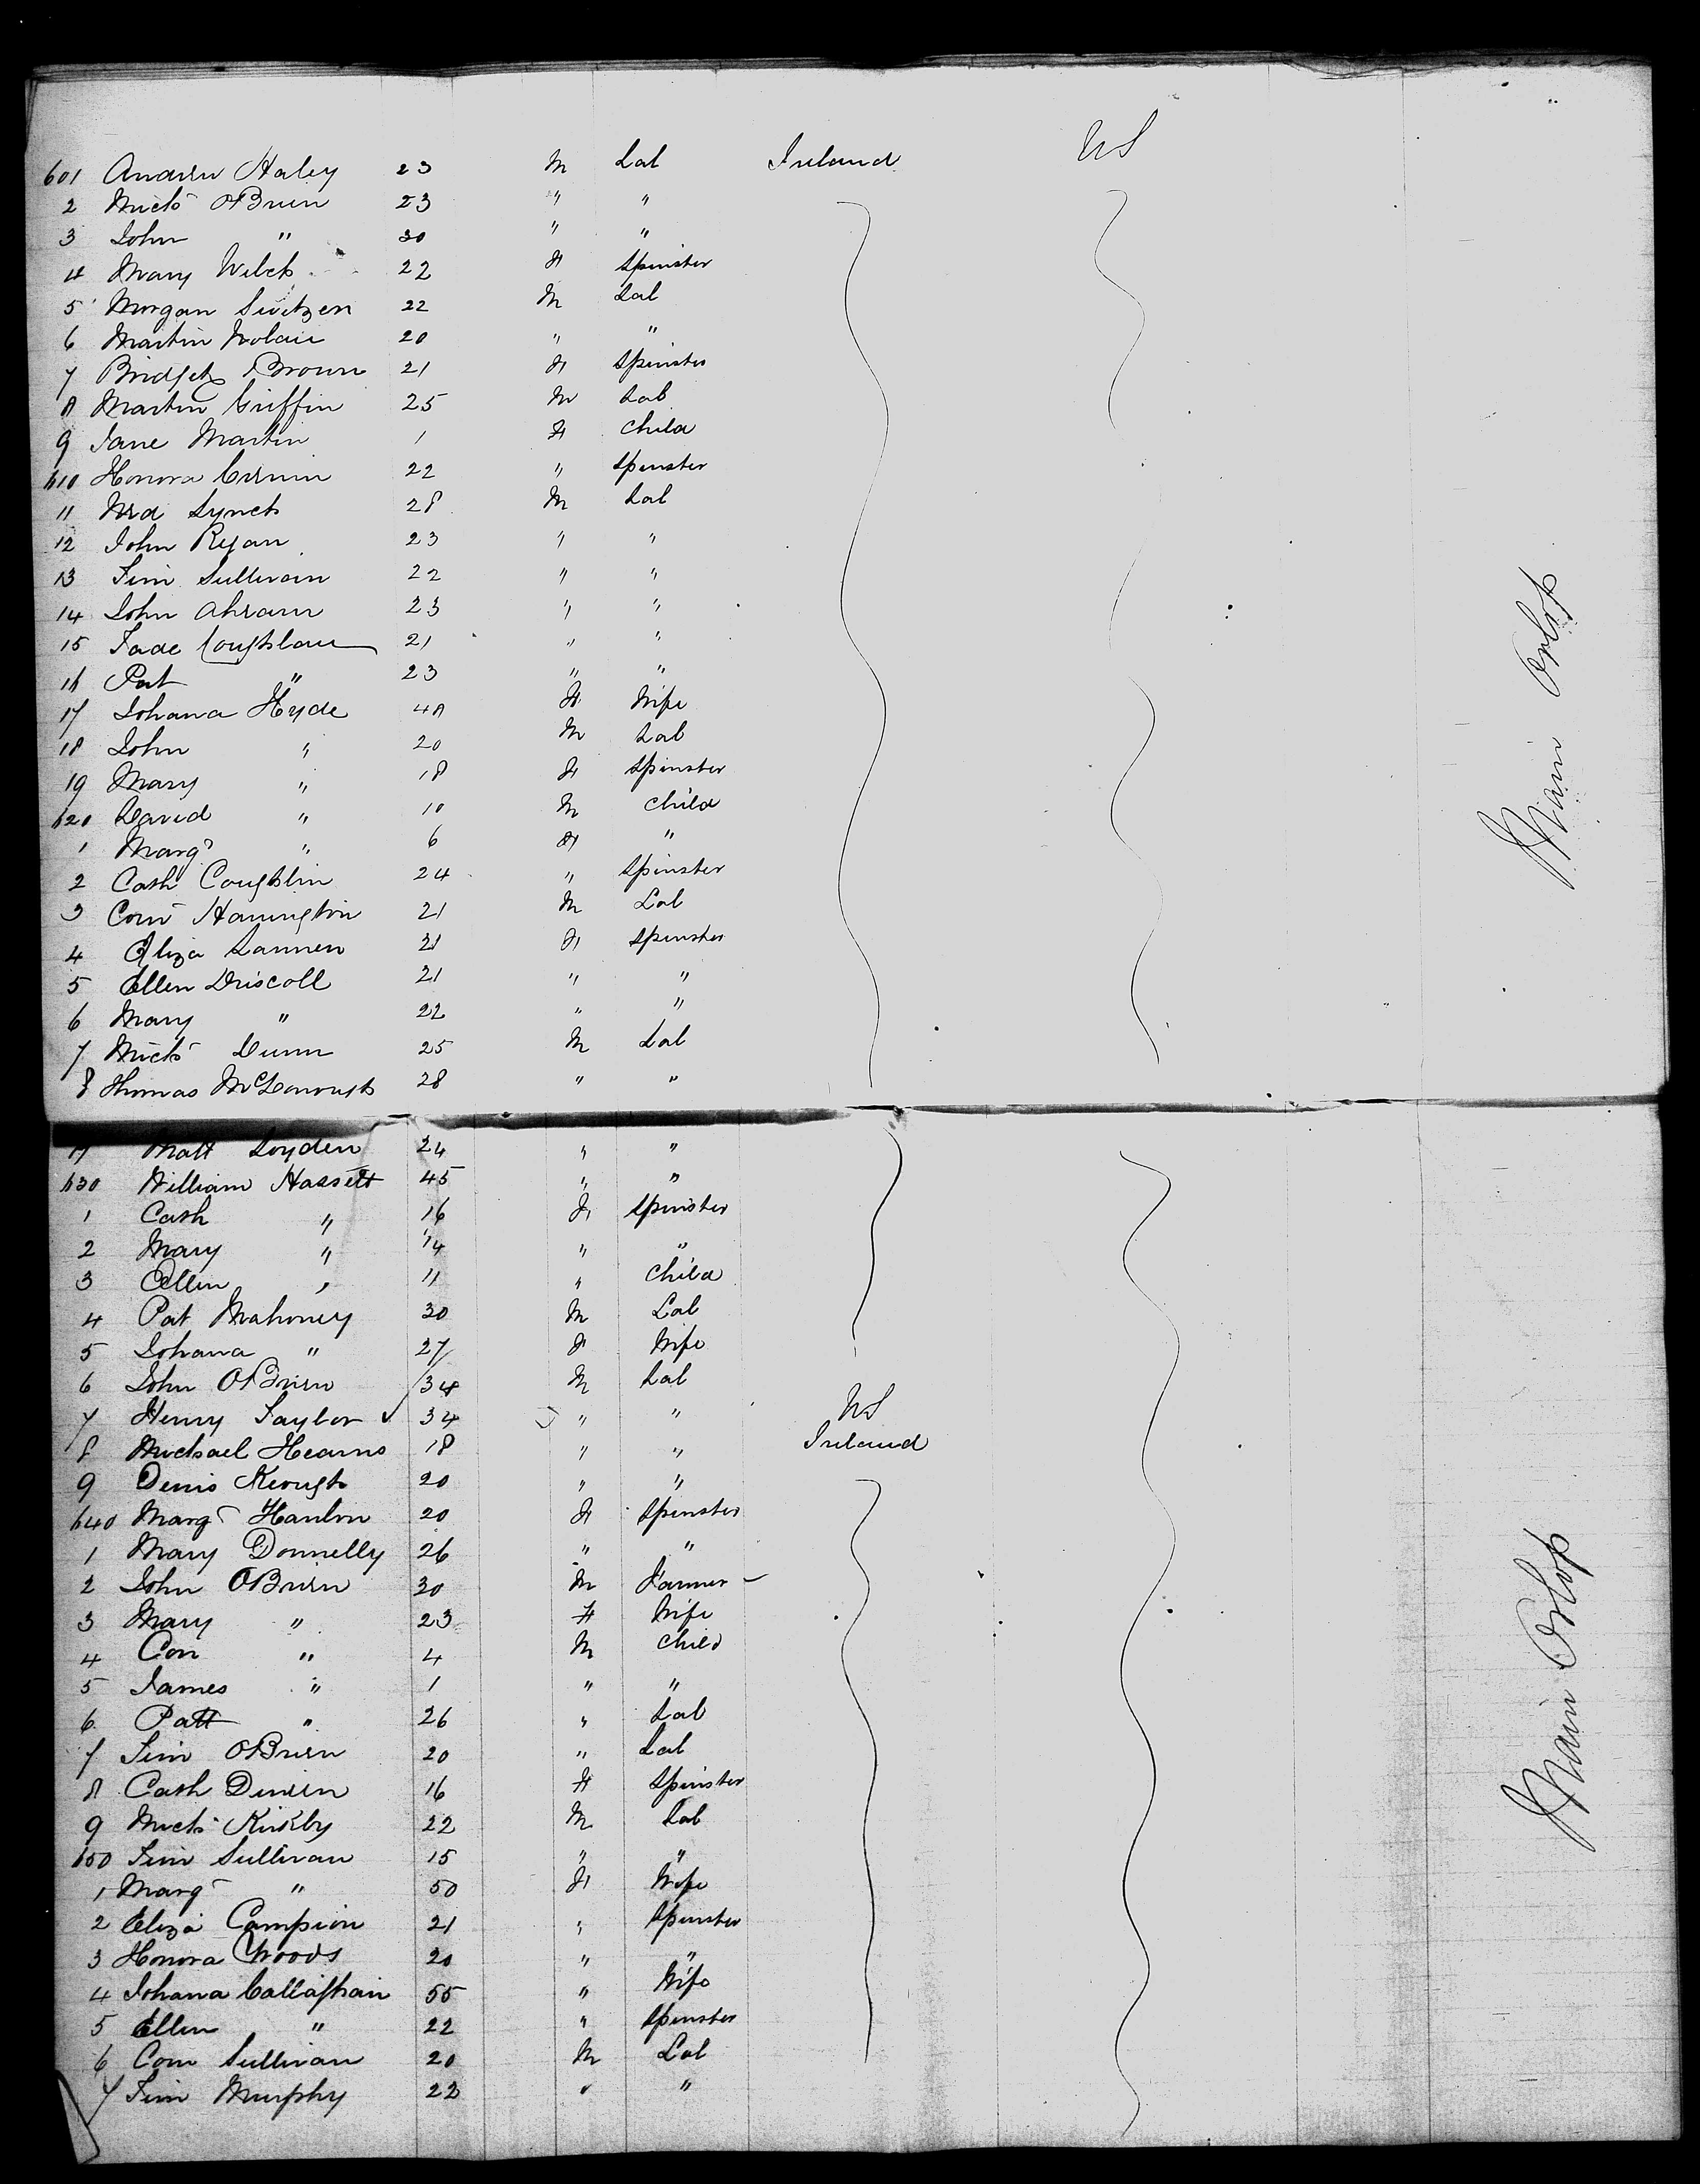 601 Andrew Haley 23 M Lab Ireland US
2 Mich OBrien 23 " "
3 John " 30 " "
4 Mary Welch 22 F Spinster
5 Morgan Switzen 22 M Lab
6 Martin Nolan 20 " "
7 Bridget Brown 21 F Spinster
8 Martin Griffin 25 M Lab
9 Jane Martin 1 F Child
610 Honora 22 " Spinster
11 Lynch 28 M Lab
12 John Ryan 23 " "
13 Tim Sullivan 22 " "
14 John 23 " "
15 Coughlan 21 " "
16 Pat " 23 " "
17 Johana Hyde 48 F Wife
18 John " 20 M Lab
19 Mary " 18 F Spinster
620 David " 10 M Child
1 Marg " 6 F "
2 Cath Coughlin 24 " Spinster
3 Con Harrington 21 M Lab
4 Eliza Lannen 21 F Spinster
5 Ellen Driscoll 21 " "
6 Mary " 22 " "
7 Mich Dunn 25 M Lab
8 Thomas McDonough 28 " "
Main Orlop
9 Matt Loyden 24 " "
630 William Hassett 45 " "
1 Cath " 16 F Spinster
2 Mary " 14 " "
3 Ellen " 11 " Child
4 Pat Mahoney 30 M Lab
5 Johana " 27 F Wife
6 John OBrien 34 M Lab
7 Henry Taylor ✓ 34 " " US
8 Michael Hearns 18 " " Ireland
9 Denis Keough 20 " "
640 Marg Hanlon 20 F Spinster
1 Mary Donnelly 26 " "
2 John OBrien 30 M Farmer
3 Mary " 23 F Wife
4 Con " 4 M Child
5 James " 1 " "
6 Patt " 26 " Lab
7 Tim OBrien 20 " Lab
8 Cath Dineen 16 F Spinster
9 Mich Kirkby 22 M Lab
650 Tim Sullivan 15 " "
1 Marg " 50 F Wife
2 Eliza Campion 21 " Spinster
3 Honora Woods 20 " "
4 Johana Callaghan 55 " Wife
5 Ellen " 22 " Spinster
6 Con Sullivan 20 M Lab
7 Tim Murphy 22 " "
Main Orlop